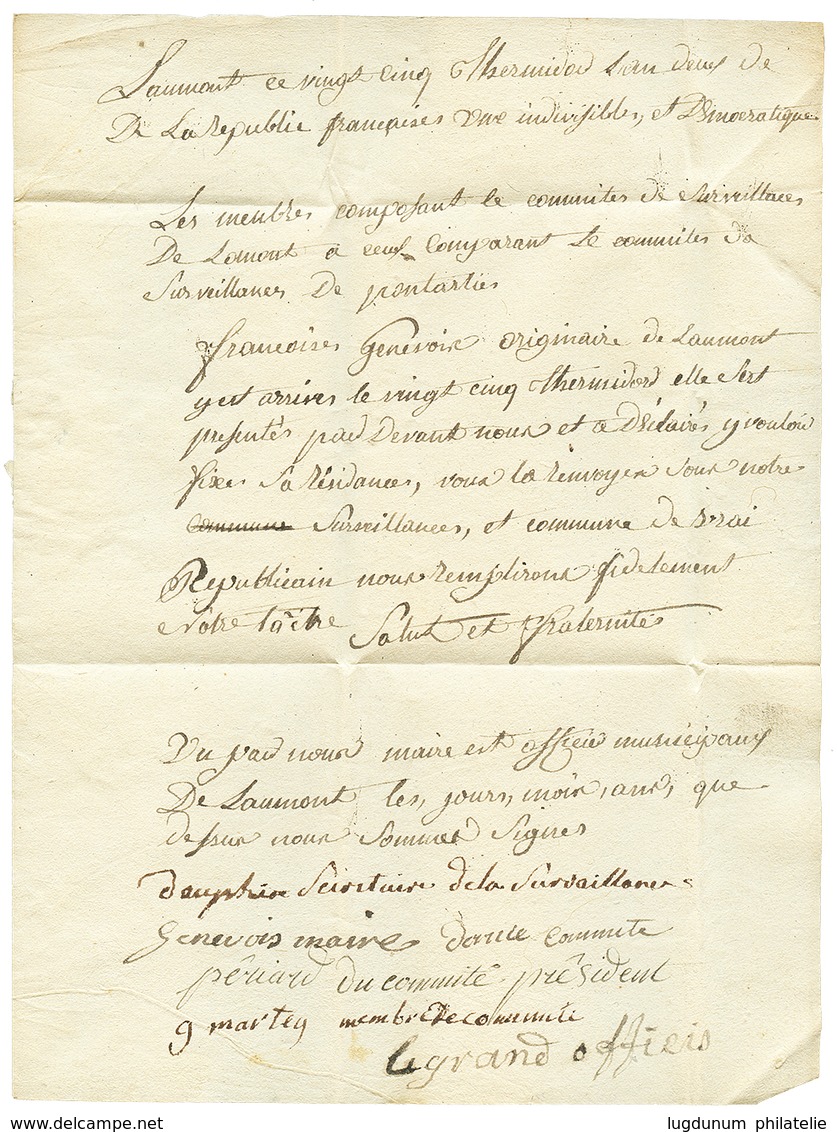 Laumont ce vingt cinq Thermidor Lan deux de
De La Republic françaises vne indivisibles, et Démocratique
Les membres composant le commites de Surveillances
De Lomont a ceux Comparant le commites de
Surveillances De pontarlies
françoises Genevoise originaire de Laumont
y est arrives le vingt cinq Thermidord elle Sest
presentés pard Devant nous et a Déclarés y vouloir
fixes Sa Résidances, vous la Renvoyer Sous notre
commune Surveillances, et commune de vrai
Republicain nous Remplirons fidelement
vôtre tâche Salut et fraternités
Vu pard nous maire est officié municipaux
De Laumont les, jours, mois, ans, que
dessus nous Sommes Signes
dauphin Secretaire de la Survaillance
Genevois maire commite
périard du commité président
g martey membre De commite
legrand officis
www.delcampe.net
lugdunum philatelie